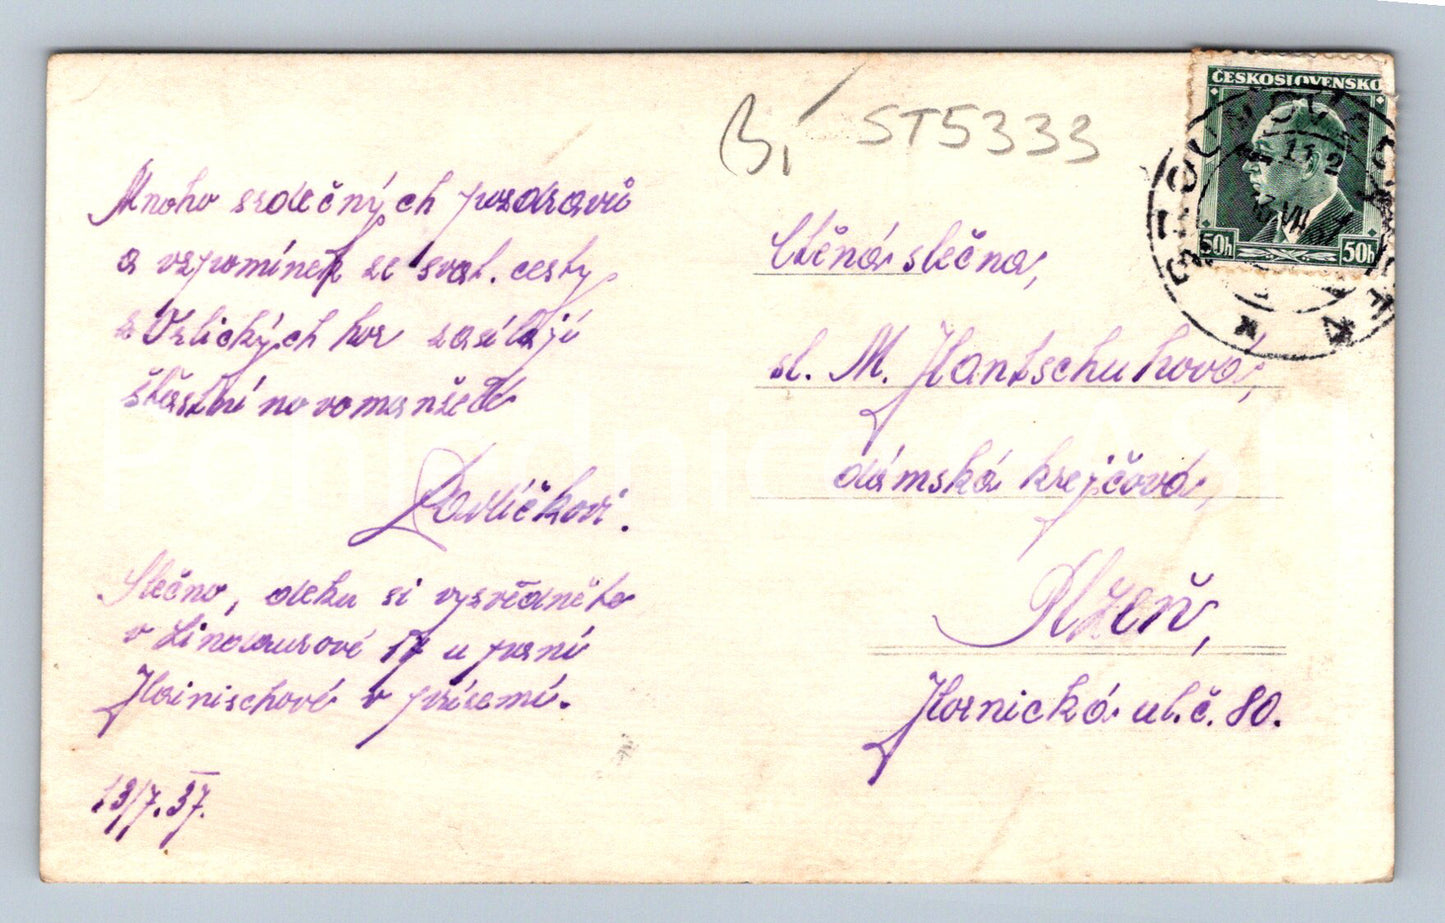 Mnoho srdečných pozdravů
a vzpomínek ze svat. cesty
z Orlických hor zasílají
šťastní novomanželé
Pavlíčkovi.
Slečno, deku si vyzvedněte
v 17 u paní
Hainischové v přízemí.
13/7.37.
Bí
ST5333
ČESKOSLOVENSKO
50h 50h
Ctěná slečna,
sl. M. Hantschuhová,
dámská krejčová,
Plzeň,
Hornická ul. č. 80.
Pohlednice CASH